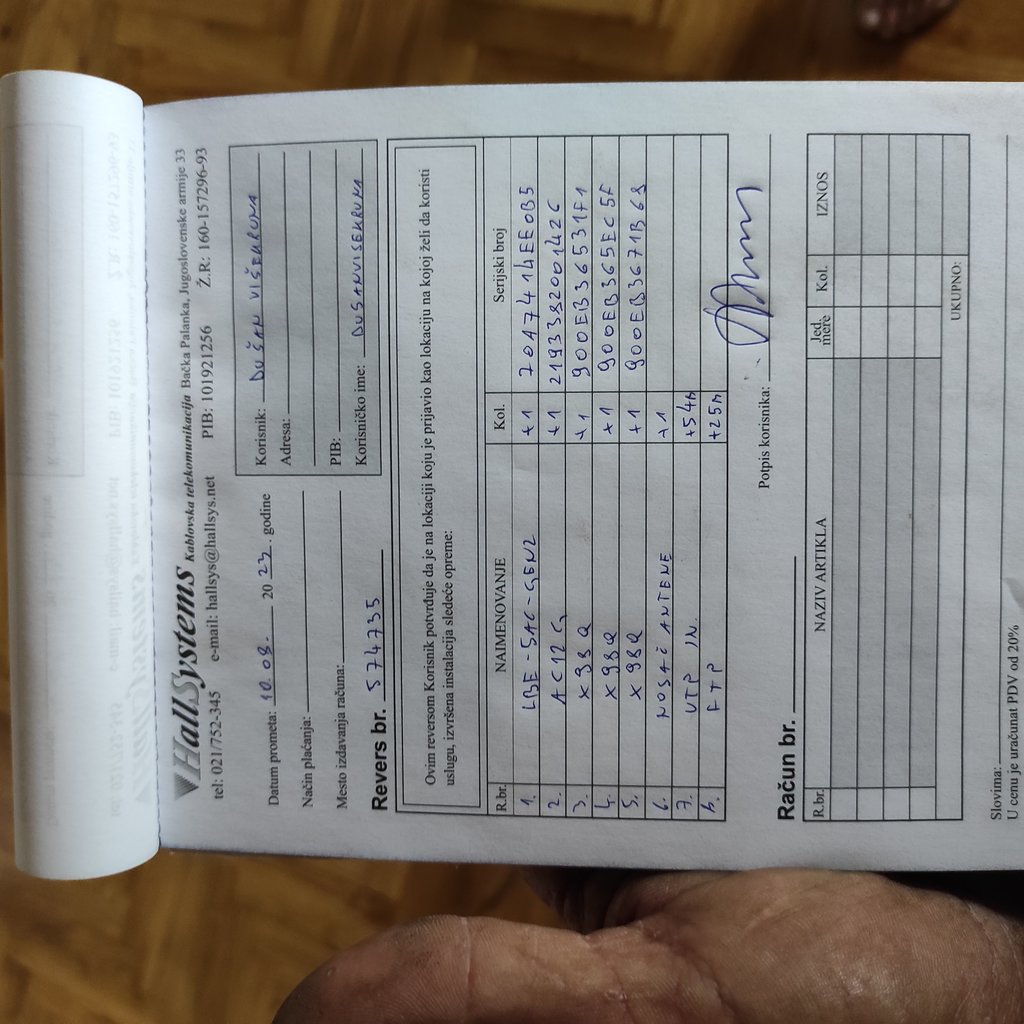 HallSystems Kablovska telekomunikacija Bačka Palanka, Jugoslovenske armije 33
tel: 021/752-345 e-mail: hallsys@hallsys.net PIB: 101921256 Ž.R: 160-157296-93
Datum prometa: 10.08. 2023. godine
Način plaćanja:
Mesto izdavanja računa:
Korisnik: DUŠAN VIŠEKRUNA
Adresa:
PIB:
Korisničko ime: DUSANVISEKRUNA
Revers br. 574735
Ovim reversom Korisnik potvrđuje da je na lokaciji koju je prijavio kao lokaciju na kojoj želi da koristi
uslugu, izvršena instalacija sledeće opreme:
R.br. NAIMENOVANJE Kol. Serijski broj
1. LBE-5AC-GEN2 +1 7047414EE0B5
2. AC12G +1 2193382001426
3. X98Q +1 900EB36531F1
4. X98Q +1 900EB365EC5F
5. X98Q +1 900EB3671B68
6. NOSAČ ANTENE +1
7. UTP IN. +54m
8. FTP +25m
Potpis korisnika:
Račun br.
R.br. NAZIV ARTIKLA Jed. mere Kol. IZNOS
UKUPNO:
Slovima:
U cenu je uračunat PDV od 20%